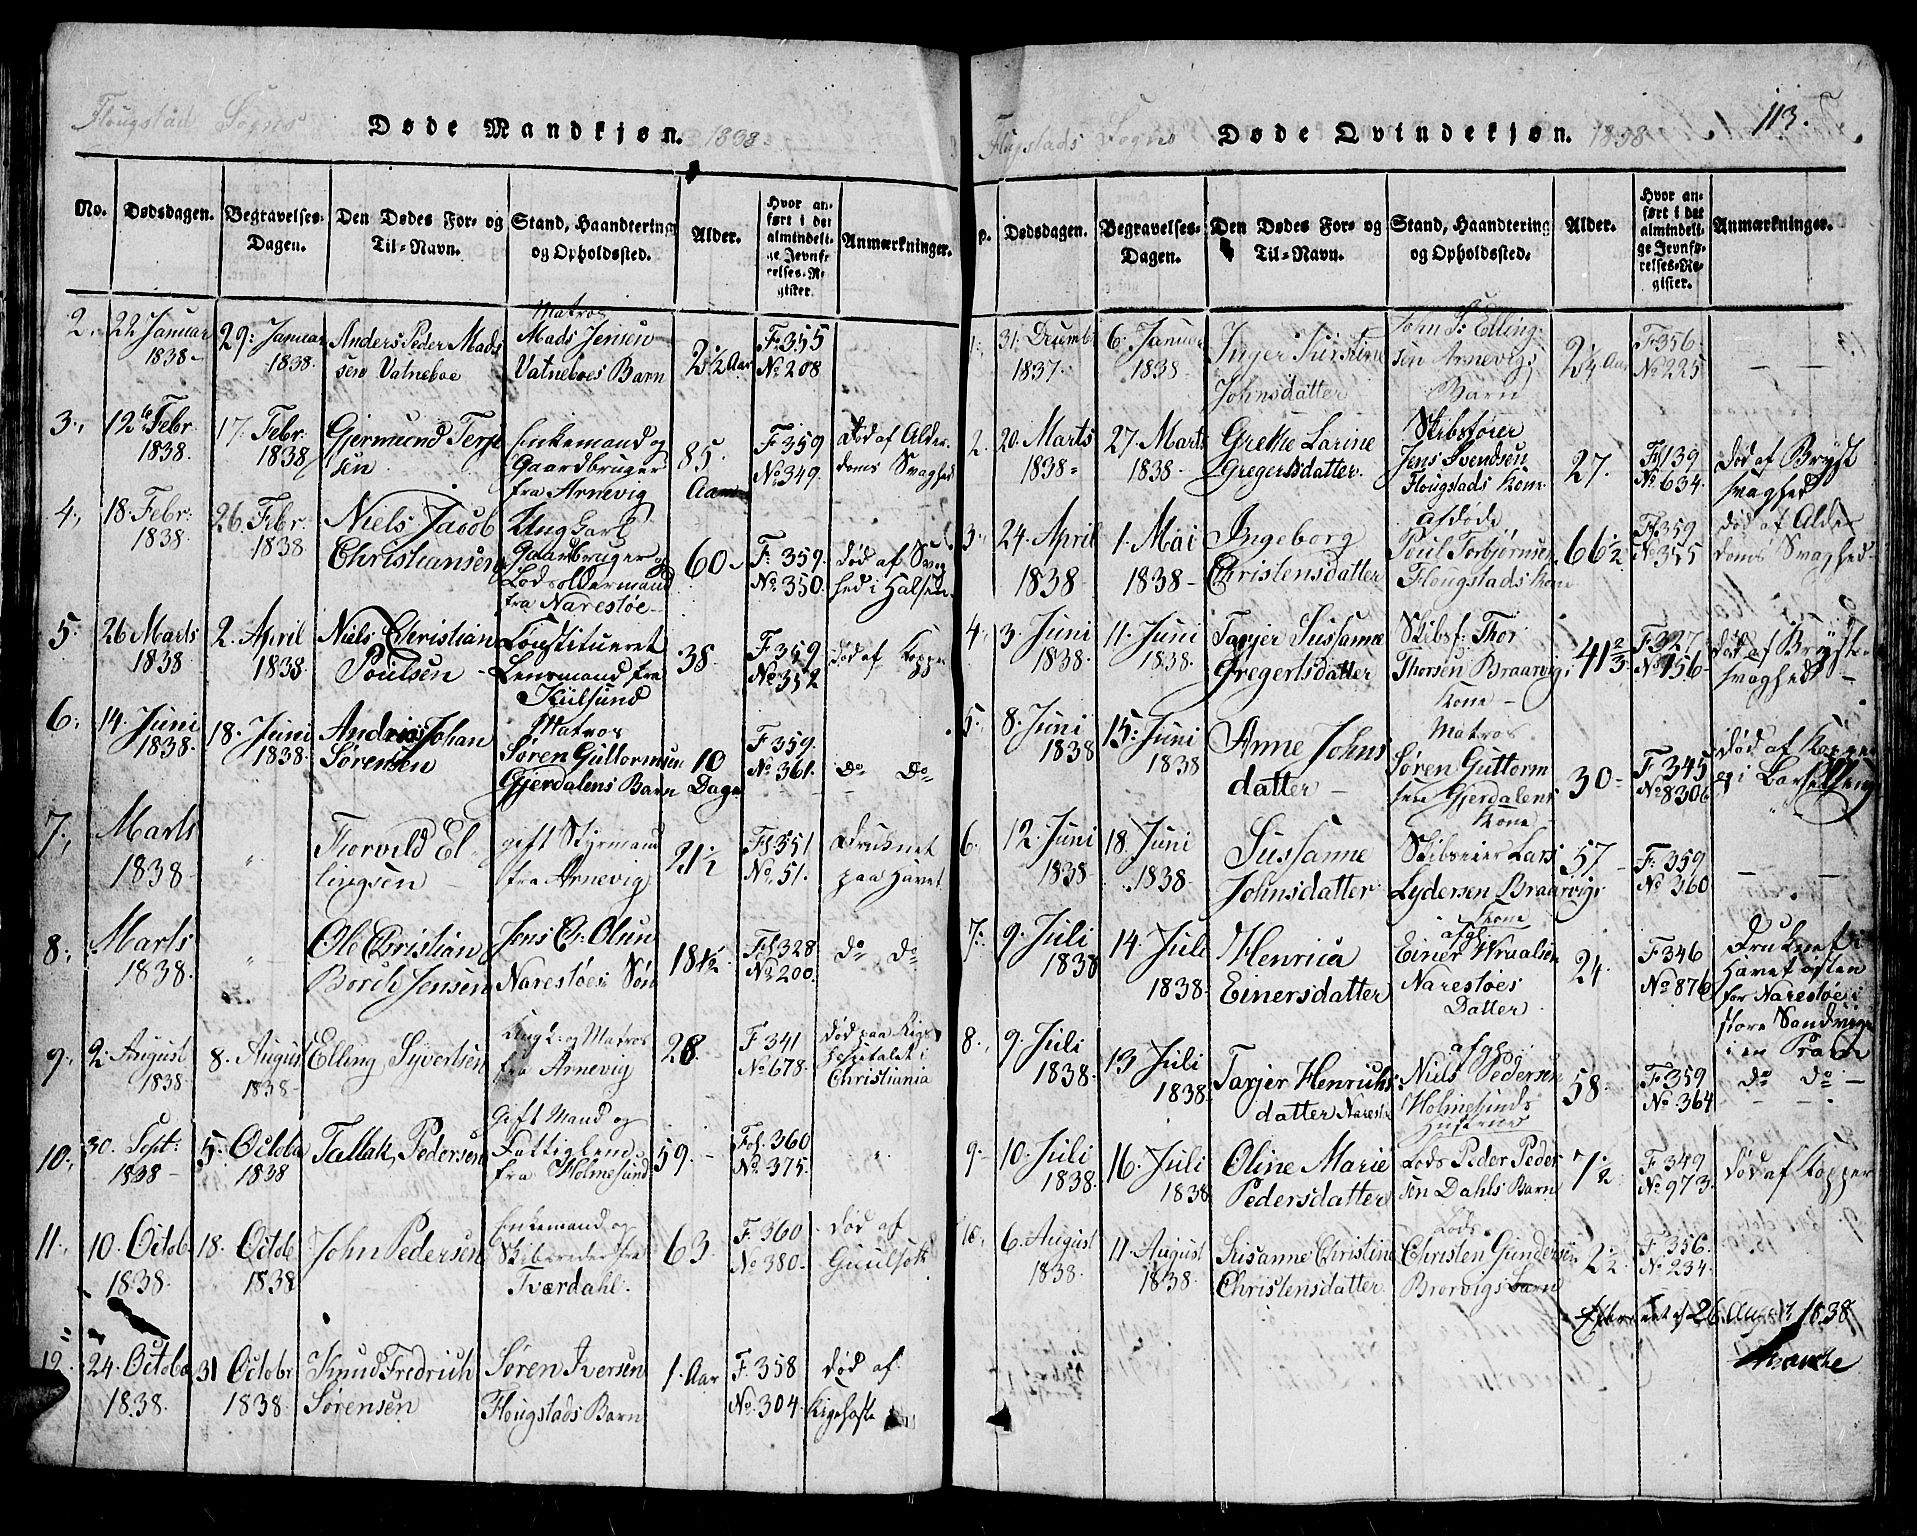 Flougstad Sogns
Døde Mandkjøn. 1838
No. Dødsdagen. Begravelses-Dagen. Den Dødes For- og Til-Navn. Stand, Haandtering og Opholdssted. Alder. Hvor anført i det almindelige Jevnførelses-Register. Anmærkninger.
2. 22 Januar 1838 29. Januar 1838. Anders Peder Madssen Vatneboe Matros Mads Jensen Vatneboes Barn 2½ Aar F. 355 No 208
3. 12te Febr. 1838. 17. Febr. 1838 Gjermund Terjesen Enkemand og Gaardbruger fra Arnevig 85. Aar F. 359 No. 349. død af Alderdoms Svaghed
4. 18. Febr: 1838. 26. Febr. 1838 Niels Jacob Christiansen Ungkarl Gaardbruger og Lodsoldermand fra Narestøe 60 F. 359. No. 350. død af Svaghed i Halsen
5. 26 Marts 1838 2. April 1838. Niels Christian Poulsen Constitueret Lensmand fra Kulsund 38. F. 359 No. 352 død af Kopper
6. 14. Juni 1838. 18. Juni 1838. Andreas Johan Sørensen Matros Søren Guttormsen Gjerdalens Barn 10 Dage F. 359. No. 361. do do
7. Marts 1838 " Torvild Ellingsen gift Styrmand fra Arnevig 21½ Fl. 351. No. 51. Druknet paa Havet
8. Marts 1838. " Ole Christian Borch Jensen Jens Ch. Olsen Narestøes Søn 18½ Fl. 328 No. 200. do do
9. 2. August 1838 8. August 1838 Elling Syvertsen Ungk. og Matros fra Arnevig 28. F. 341 No. 678. død paa Rigshospitalet i Christiania
10. 30. Sept: 1838 5. Octobr 1838 Tallak Pedersen Gift Mand og Fattiglem fra Holmesund 59. Fol. 360 No. 375. "
11. 10. Octob. 1838. 18. Octob 1838 John Pedersen Enkemand og Skibsreder fra Tværdahl. 63. F. 360 No. 380. død af Guulsott
12. 24. Octobr 1838. 31 Octobr 1838 Knud Fredrich Sørensen Søren Iversen Flougstads Barn 1. Aar F. 358 No. 304. død af Kighoste
113.
Flougstads Sogns
Døde Qvindekjøn. 1838
Dødsdagen. Begravelses-Dagen. Den Dødes For- og Til-Navn. Stand, Haandtering og Opholdssted. Alder. Hvor anført i det almindelige Jevnførelses-Register. Anmærkninger.
1. 31. Decembr 1837. 6. Januar 1838 Inger Kirstine Johnsdatter John S. Ellingsen Arnevigs Barn 2¼ Aar F. 356. No 225
2. 20. Marts 1838 27. Marts 1838 Grethe Larine Gregertsdatter. Skibsfører Jens Svendsen Flougstads Kone 27. Fl. 139 No. 634. død af Brystsvaghed
3. 24. April 1838 1. Mai 1838 Ingeborg Christensdatter afdøde Poul Torbjørnsen Flougstads Kone 66½ Fl. 359 No. 355 død af Alderdoms Svaghed
4. 3. Juni 1838. 11. Juni 1838. Taxjer Sussanne Gregertsdatter Skibsf. Thor Thorsen Braarvigs Kone 41⅔ F. 327 No. 156. død af Brystsvaghed
5. 8. Juni 1838 15. Juni 1838 Anne Johnsdatter Matros Søren Guttormsen Gjerdalens Kone 30 F. 345 No. 830 død af Kopper og i Barselseng
6. 12. Juni 1838 18. Juni 1838 Sussanne Johnsdatter Skibseier Lars Lydersen Braarvigs Kone 57 F. 359 No. 360
7. 9. Juli 1838 14. Juli 1838. Henrica Einersdatter Einer Wraalsen Narestøes Datter 24. F. 346 No. 876 Druknet i Havet østen for Narestøe i store Sandvigen i en Pram
8. 9. Juli 1838. 13 Juli 1838 Taxjer Henrichsdatter Narestø Niels Pedersen Holmesunds Hustrue 58. F. 359 No. 364 do do
9. 10. Juli 1838. 16. Juli 1838 Oline Marie Pedersdatter Lods Peder Pedersen Dahls Barn 7½ F. 349 No. 973. død af Kopper
10. 6. August 1838. 11. August 1838. Susanne Christine Christensdatter Lods Christen Gundersen Brorvigs Barn 2½ F. 356. No. 234.
26. August 1838